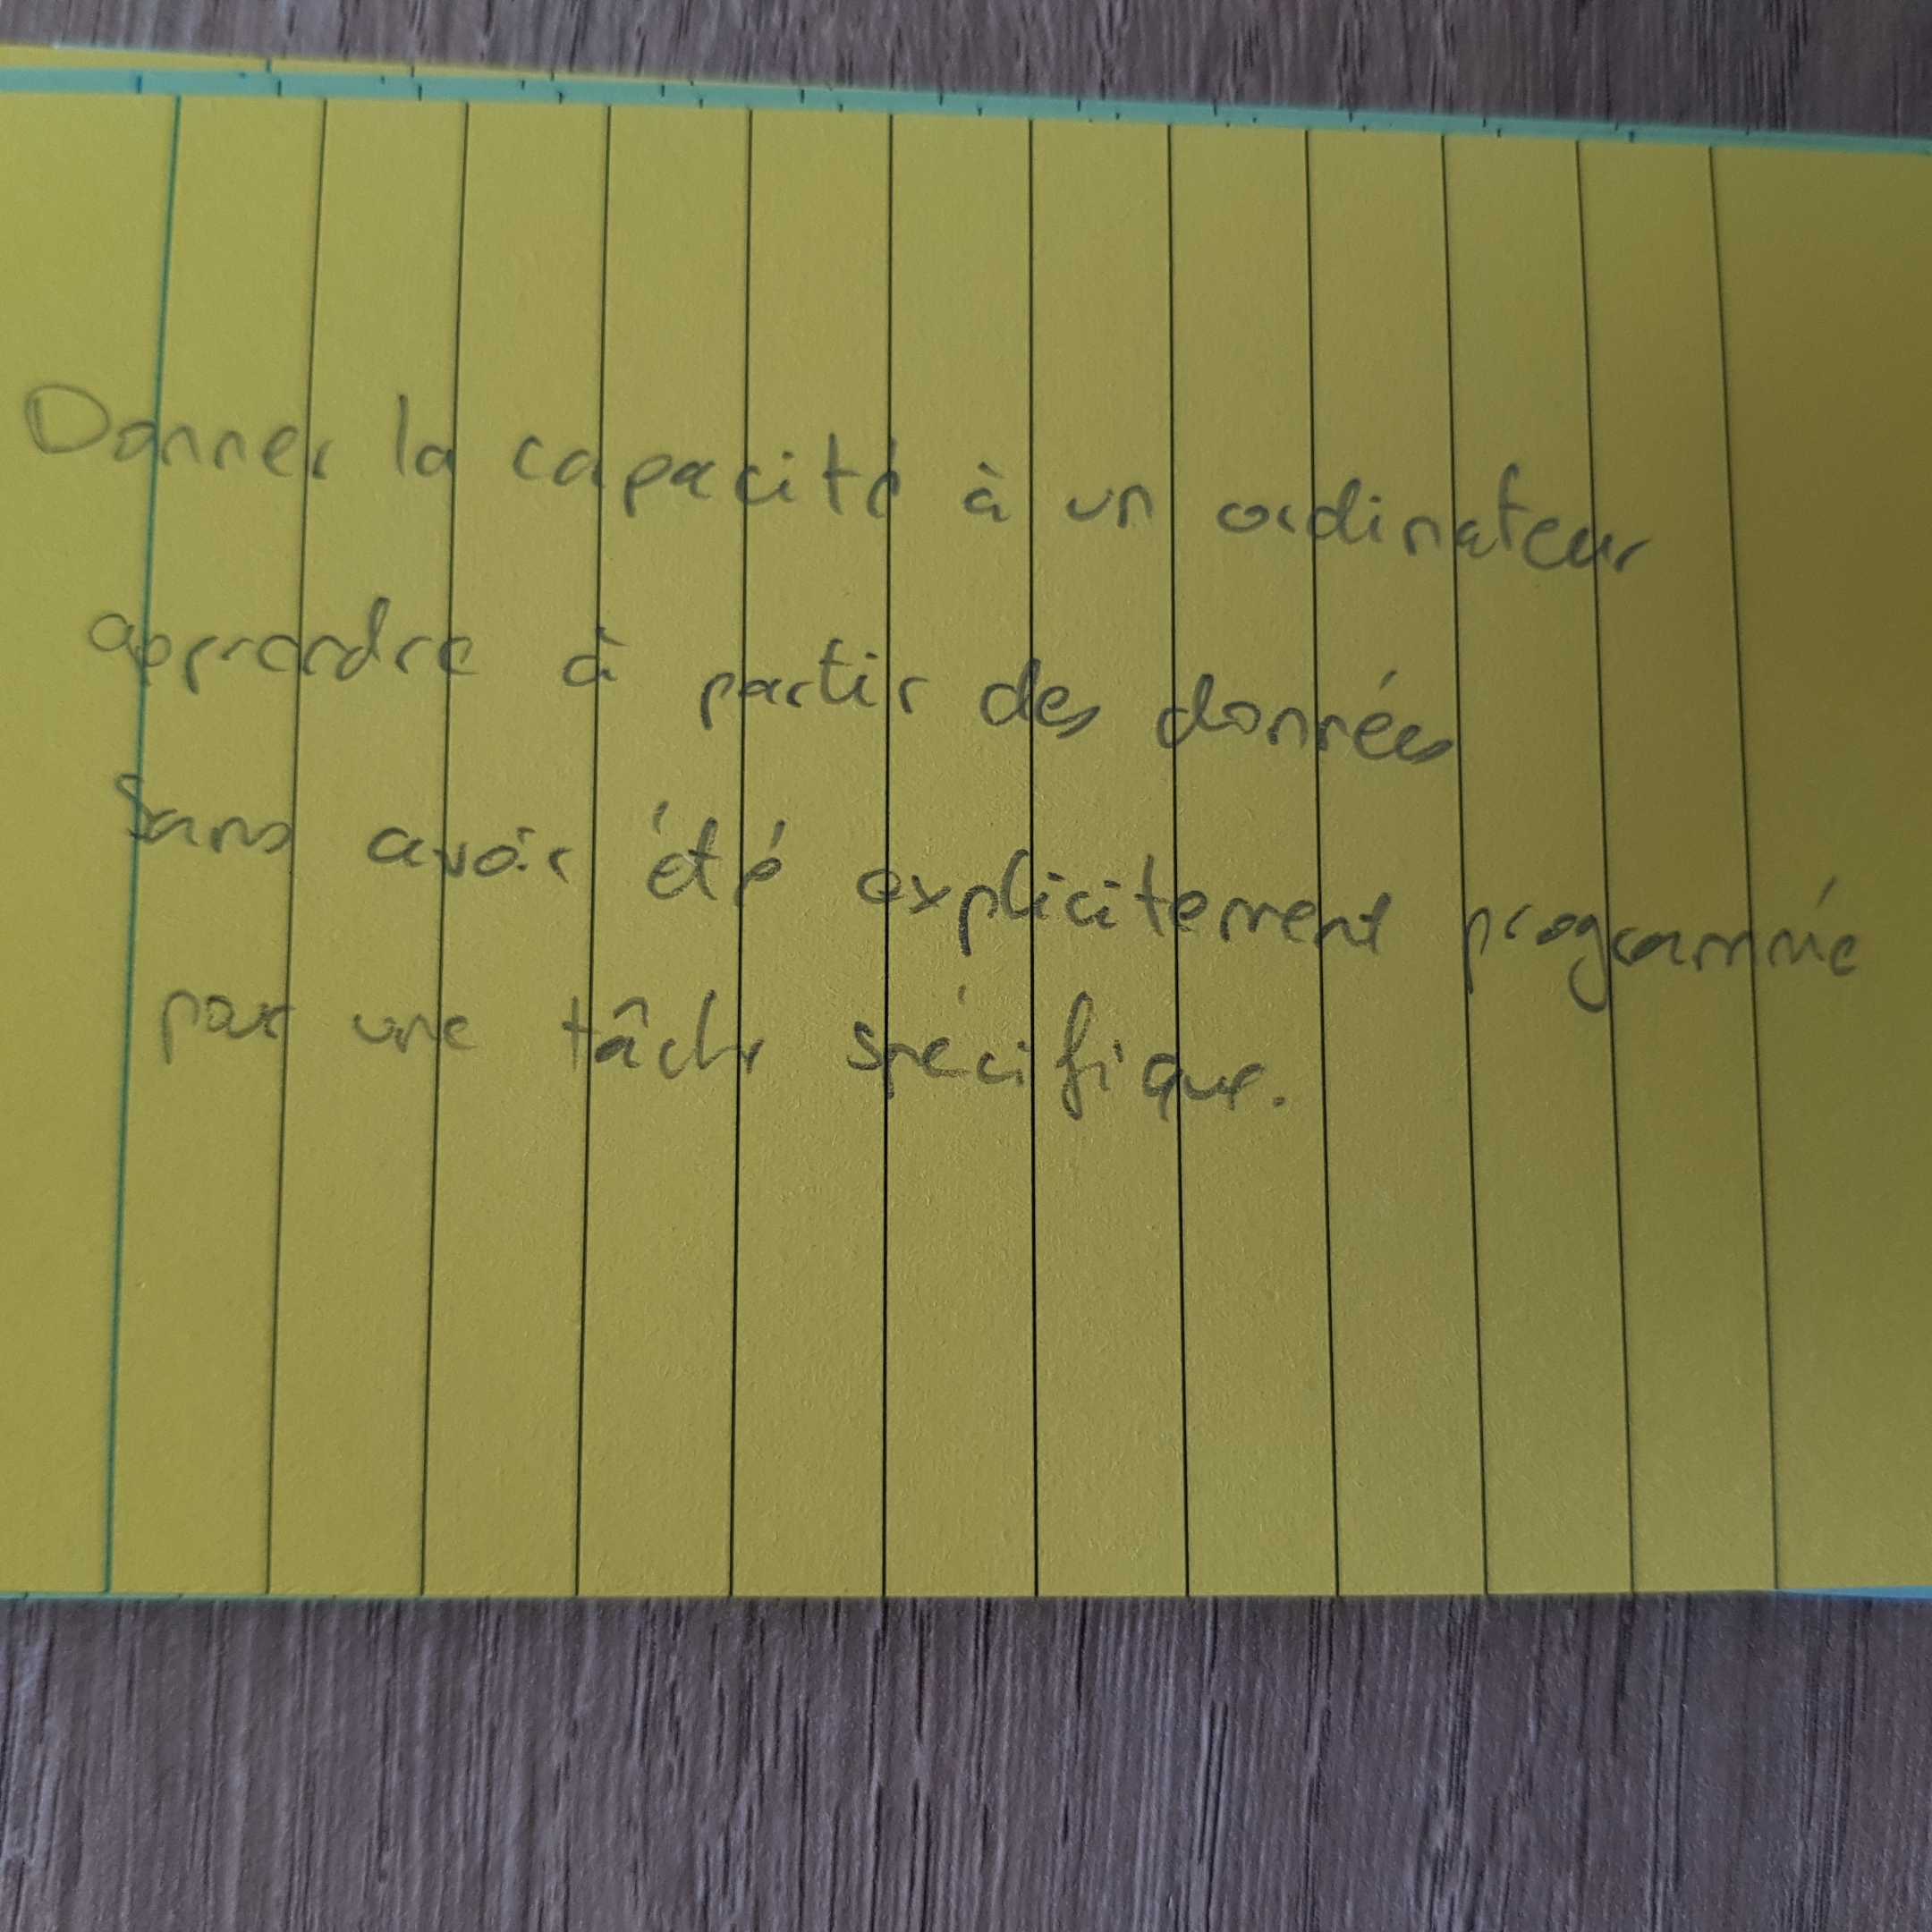 Donner la capacité à un ordinateur
apprendre à partir des données
sans avoir été explicitement programmée
pour une tâche spécifique.